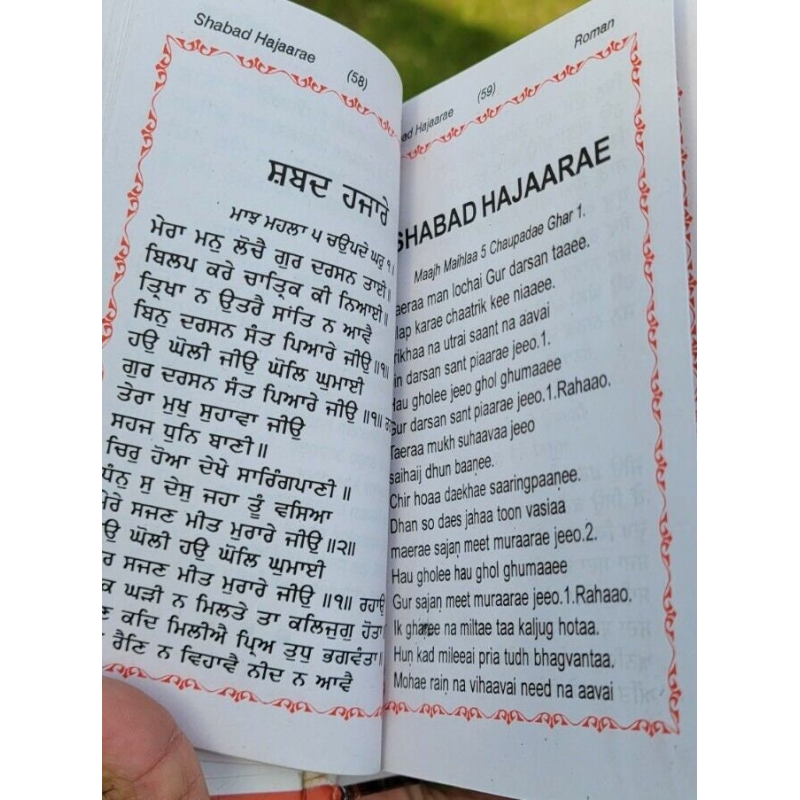 Shabad Hajaarae
(58)
ਸ਼ਬਦ ਹਜਾਰੇ
ਮਾਝ ਮਹਲਾ ੫ ਚਉਪਦੇ ਘਰੁ ੧॥
ਮੇਰਾ ਮਨੁ ਲੋਚੈ ਗੁਰ ਦਰਸਨ ਤਾਈ॥
ਬਿਲਪ ਕਰੇ ਚਾਤ੍ਰਿਕ ਕੀ ਨਿਆਈ॥
ਤ੍ਰਿਖਾ ਨ ਉਤਰੈ ਸਾਂਤਿ ਨ ਆਵੈ
ਬਿਨੁ ਦਰਸਨ ਸੰਤ ਪਿਆਰੇ ਜੀਉ॥੧॥
ਹਉ ਘੋਲੀ ਜੀਉ ਘੋਲਿ ਘੁਮਾਈ
ਗੁਰ ਦਰਸਨ ਸੰਤ ਪਿਆਰੇ ਜੀਉ॥੧॥
ਤੇਰਾ ਮੁਖੁ ਸੁਹਾਵਾ ਜੀਉ
ਸਹਜ ਧੁਨਿ ਬਾਣੀ॥
ਚਿਰੁ ਹੋਆ ਦੇਖੇ ਸਾਰਿੰਗਪਾਣੀ॥
ਧੰਨੁ ਸੁ ਦੇਸੁ ਜਹਾ ਤੂੰ ਵਸਿਆ
ਮੇਰੇ ਸਜਣ ਮੀਤ ਮੁਰਾਰੇ ਜੀਉ॥੨॥
ਘੋਲੀ ਹਉ ਘੋਲਿ ਘੁਮਾਈ
ਸਜਣ ਮੀਤ ਮੁਰਾਰੇ ਜੀਉ॥੧॥ ਰਹਾਉ
ਘੜੀ ਨ ਮਿਲਤੇ ਤਾ ਕਲਿਜੁਗੁ ਹੋਤਾ
ਕਦਿ ਮਿਲੀਐ ਪ੍ਰਿਅ ਤੁਧੁ ਭਗਵੰਤਾ॥
ਰੈਣਿ ਨ ਵਿਹਾਵੈ ਨੀਦ ਨ ਆਵੈ
Hajaarae
(59)
Roman
SHABAD HAJAARAE
Maajh Maihlaa 5 Chaupadae Ghar 1.
man lochai Gur darsan taaee.
karae chaatrik kee niaaee.
na utrai saant na aavai
darsan sant piaarae jeeo.1.
Hau gholee jeeo ghol ghumaaee
Gur darsan sant piaarae jeeo.1.Rahaao.
Taeraa mukh suhaavaa jeeo
saihaij dhun baaṇee.
Chir hoaa daekhae saaringpaaṇee.
Dhan so daes jahaa toon vasiaa
maerae sajaṇ meet muraarae jeeo.2.
Hau gholee hau ghol ghumaaee
Gur sajaṇ meet muraarae jeeo.1.Rahaao.
Ik gharee na miltae taa kaljug hotaa.
Huṇ kad mileeai pria tudh bhagvantaa.
Mohae raiṇ na vihaavai need na aavai